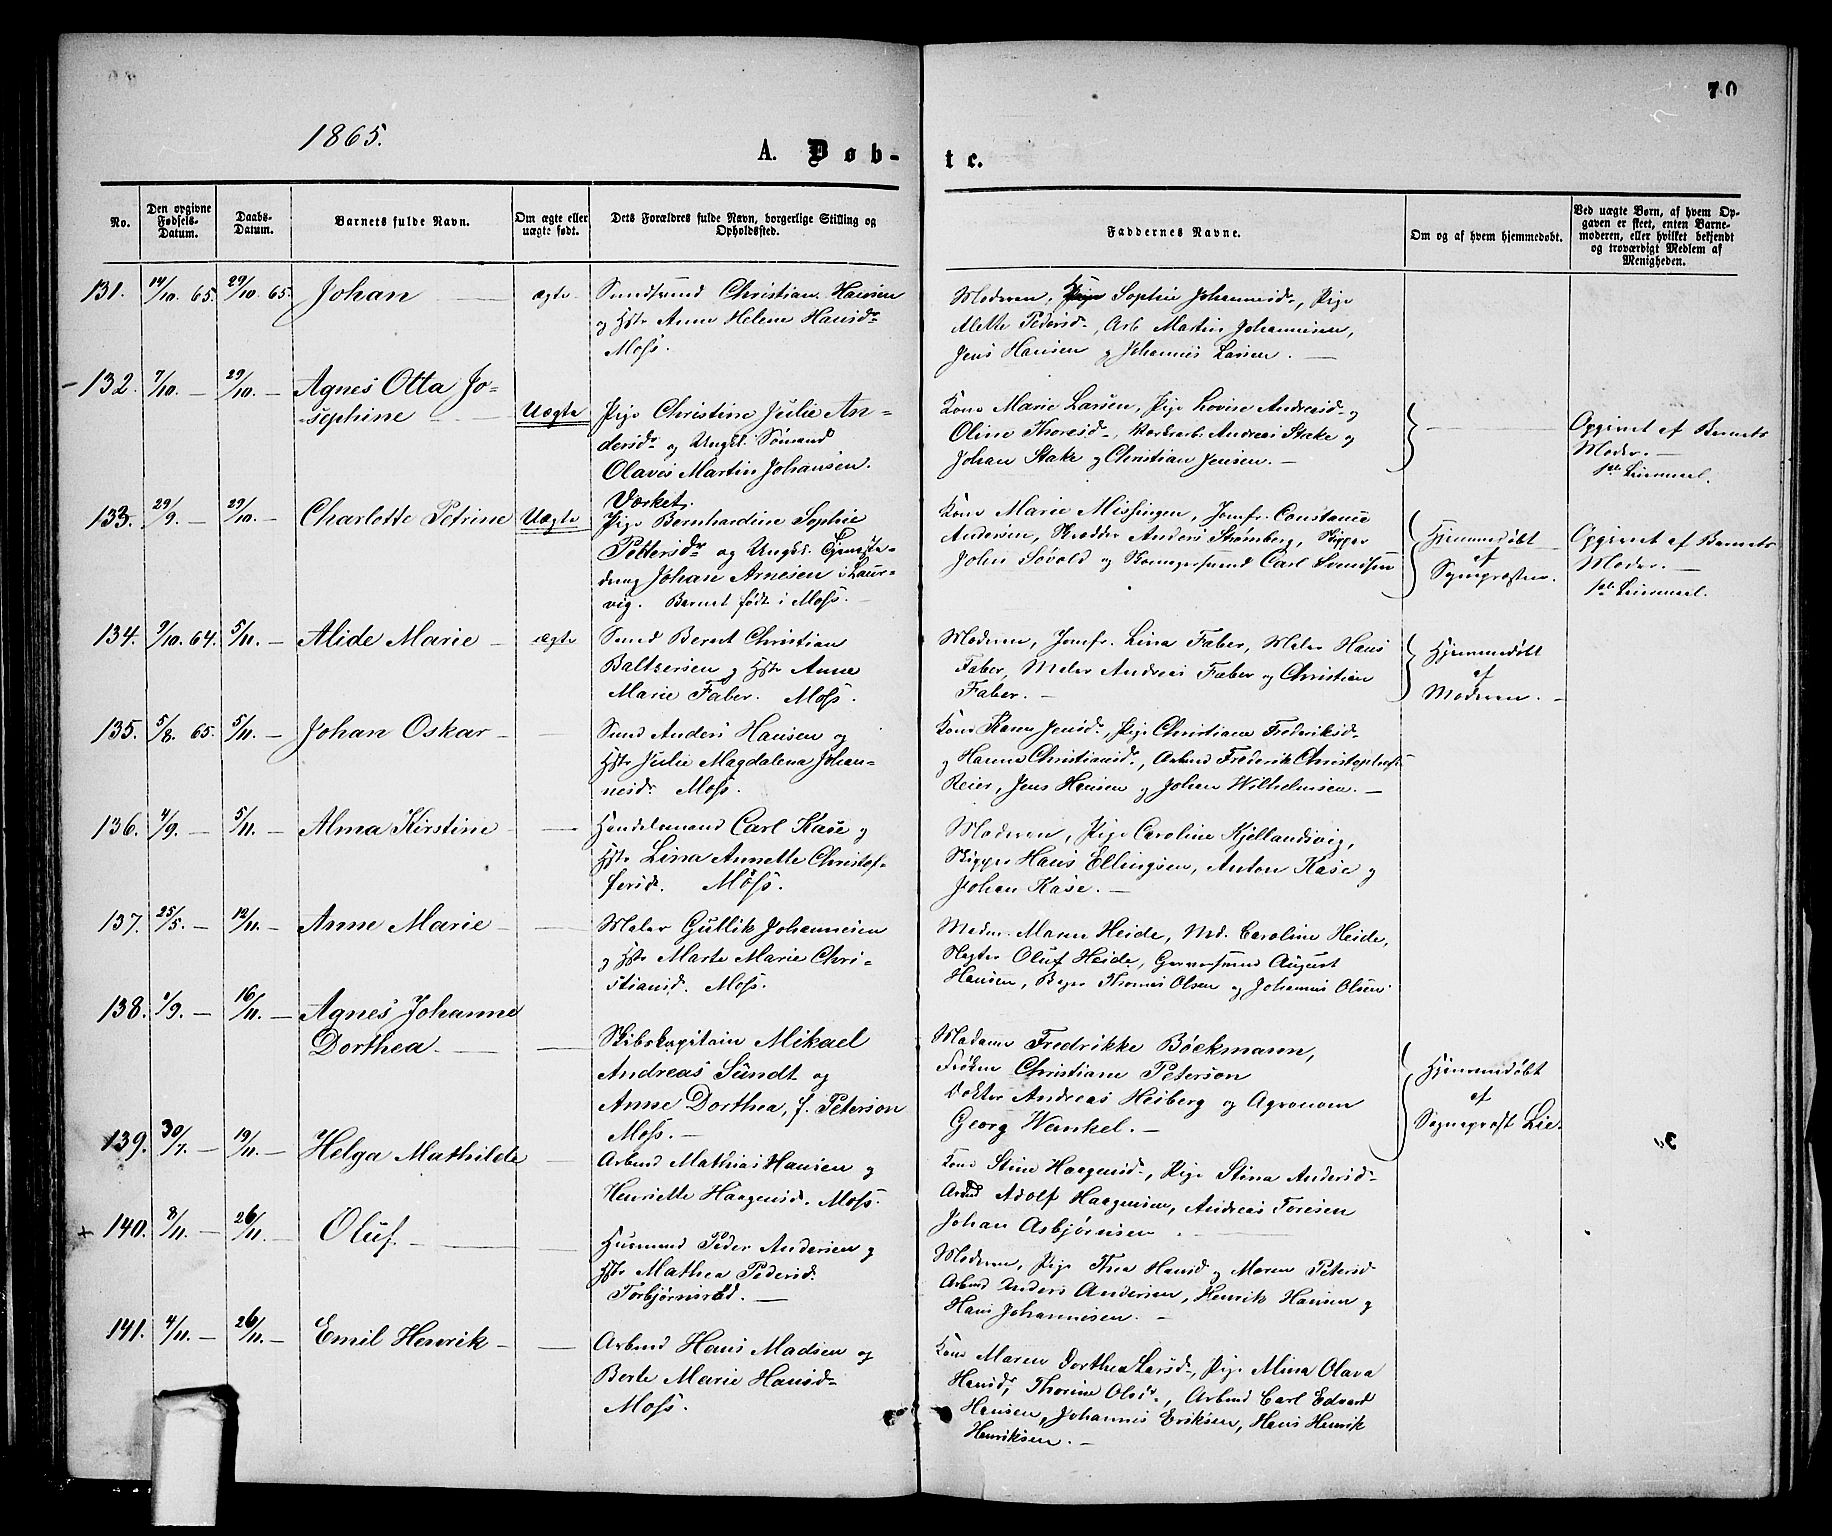 70
1865.
A. Døb-
te.
No.
Den opgivne Fødsels-Datum.
Daabs-Datum.
Barnets fulde Navn.
Om ægte eller uægte født.
Dets Forældres fulde Navn, borgerlige Stilling og Opholdssted.
Faddernes Navne.
Om og af hvem hjemmedøbt.
Ved uægte Børn, af hvem Opgaven er skeet, enten Barnemoderen, eller hvilket bekjendt og troværdigt Medlem af Menigheden.
131. 14/10. 65. 29/10. 65. Johan — ægte.
Christian Hansen
og Hstr Anne Helene Hansdr
Moss.
Moderen, Sophie Johannesdr, Pige
Mette Pedersdr, Arb Martin Johannesen,
Jens Hansen og Johannes Larsen. —
— 132. 7/10. — 29/10. — Agnes Otta Jo-
sephine — Uægte
Pige Christine Julie An-
dersdr og Ungk. Sømand
Olaves Martin Johansen.
Værket.
Kone Marie Larsen, Pige Lovise Andreasdr og
Oline Thoresdr, Værksarb. Andreas Stake og
Johan Stake og Christian Jensen. —
Opgivet af Barnets
Moder. —
1ste Leiermaal.
133. 29/9. — 29/10. — Charlotte Petrine Uægte
Pige Bernhardine Sophie
Pettersdr og Ungk. Tjeneste-
dreng Johan Arnesen i Laur-
vig. Barnet født i Moss. —
Kone Marie Missingen, Jomfr. Constance
Andersen, Skrædder Anders Strømberg, Skipper
John Søvold og Carl Svendsen
Hjemmedøbt
af
Sognepræsten.
Opgivet af Barnets
Moder. —
1ste Leiermaal.
134. 9/10. 64. 5/11. — Alide Marie — ægte
Smed Bernt Christian
Baltzersen og Hstr Anne
Marie Faber. Moss.
Moderen, Jomfr. Lina Faber, Maler Hans
Faber, Maler Andreas Faber og Christian
Faber. —
Hjemmedøbt
af
Moderen. —
135. 5/8. 65. 5/11. — Johan Oskar —
Smed Anders Hansen og
Hstr Julie Magdalena Johan-
nesdr. Moss.
Kone Karen Jensdr, Pige Christiane Frederiksdr
og Hanna Christiansdr, Arbmd Frederik Christophers
Reier, Jens Hansen og Johan Wilhelmsen. —
136. 4/9. — 5/11. — Alma Kirstine —
Handelsmand Carl Kase og
Hstr Lina Annette Christof-
fersdr. Moss.
Moderen, Pige Caroline Kjellandsvig,
Skipper Hans Ellingsen, Anton Kase og
Johan Kase. —
137. 25/5. — 12/11. — Anne Marie —
Maler Gullik Johannesen
og Hstr Marte Marie Chri-
stiansd. Moss.
Madm. Maren Heide, Md. Caroline Heide,
Oluf Heide, Garversvend August
Hansen, Thomas Olsen og Johannes Olsen.
138. 1/9. — 16/11. — Agnes Johanne
Dorthea. —
Skibskapitain Mikael
Andreas Sundt og
Anne Dorthea, f. Peterson
Moss. —
Madame Fredrikke Bøckmann,
Frøken Christiane Peterson
Doktor Andreas Heiberg og Agronom
Georg Wankel. —
Hjemmedøbt
af
Sogneprest Lie.
139. 30/7. — 19/11. — Helga Mathilde —
Arbmd Mathias Hansen og
Henriette Haagensd. Moss.
Kone Stine Haagensdr, Pige Stina Andersdr
Arbmd Adolf Haagensen, Andreas Toresen
Johan Asbjørnsen. —
+ 140. 8/11. — 26/11. — Oluf. —
Husmand Peder Andersen og
Hstr Mathea Pedersd.
Torbjørnsrød. —
Moderen, Pige Thea Hansd og Maren Petersd
Arbmd Anders Andersen, Henrik Hansen og
Hans Johannesen. —
141. 4/11. — 26/11. — Emil Henrik —
Arbmd Hans Madsen og
Berte Marie Hansdr
Moss.
Kone Maren Dorthea Larsdr, Pige Mina Olava
Hansdr, Thorine Olsdr, Arbmd Carl Edvard
Hansen, Johannes Eriksen, Hans Henrik
Henriksen. —